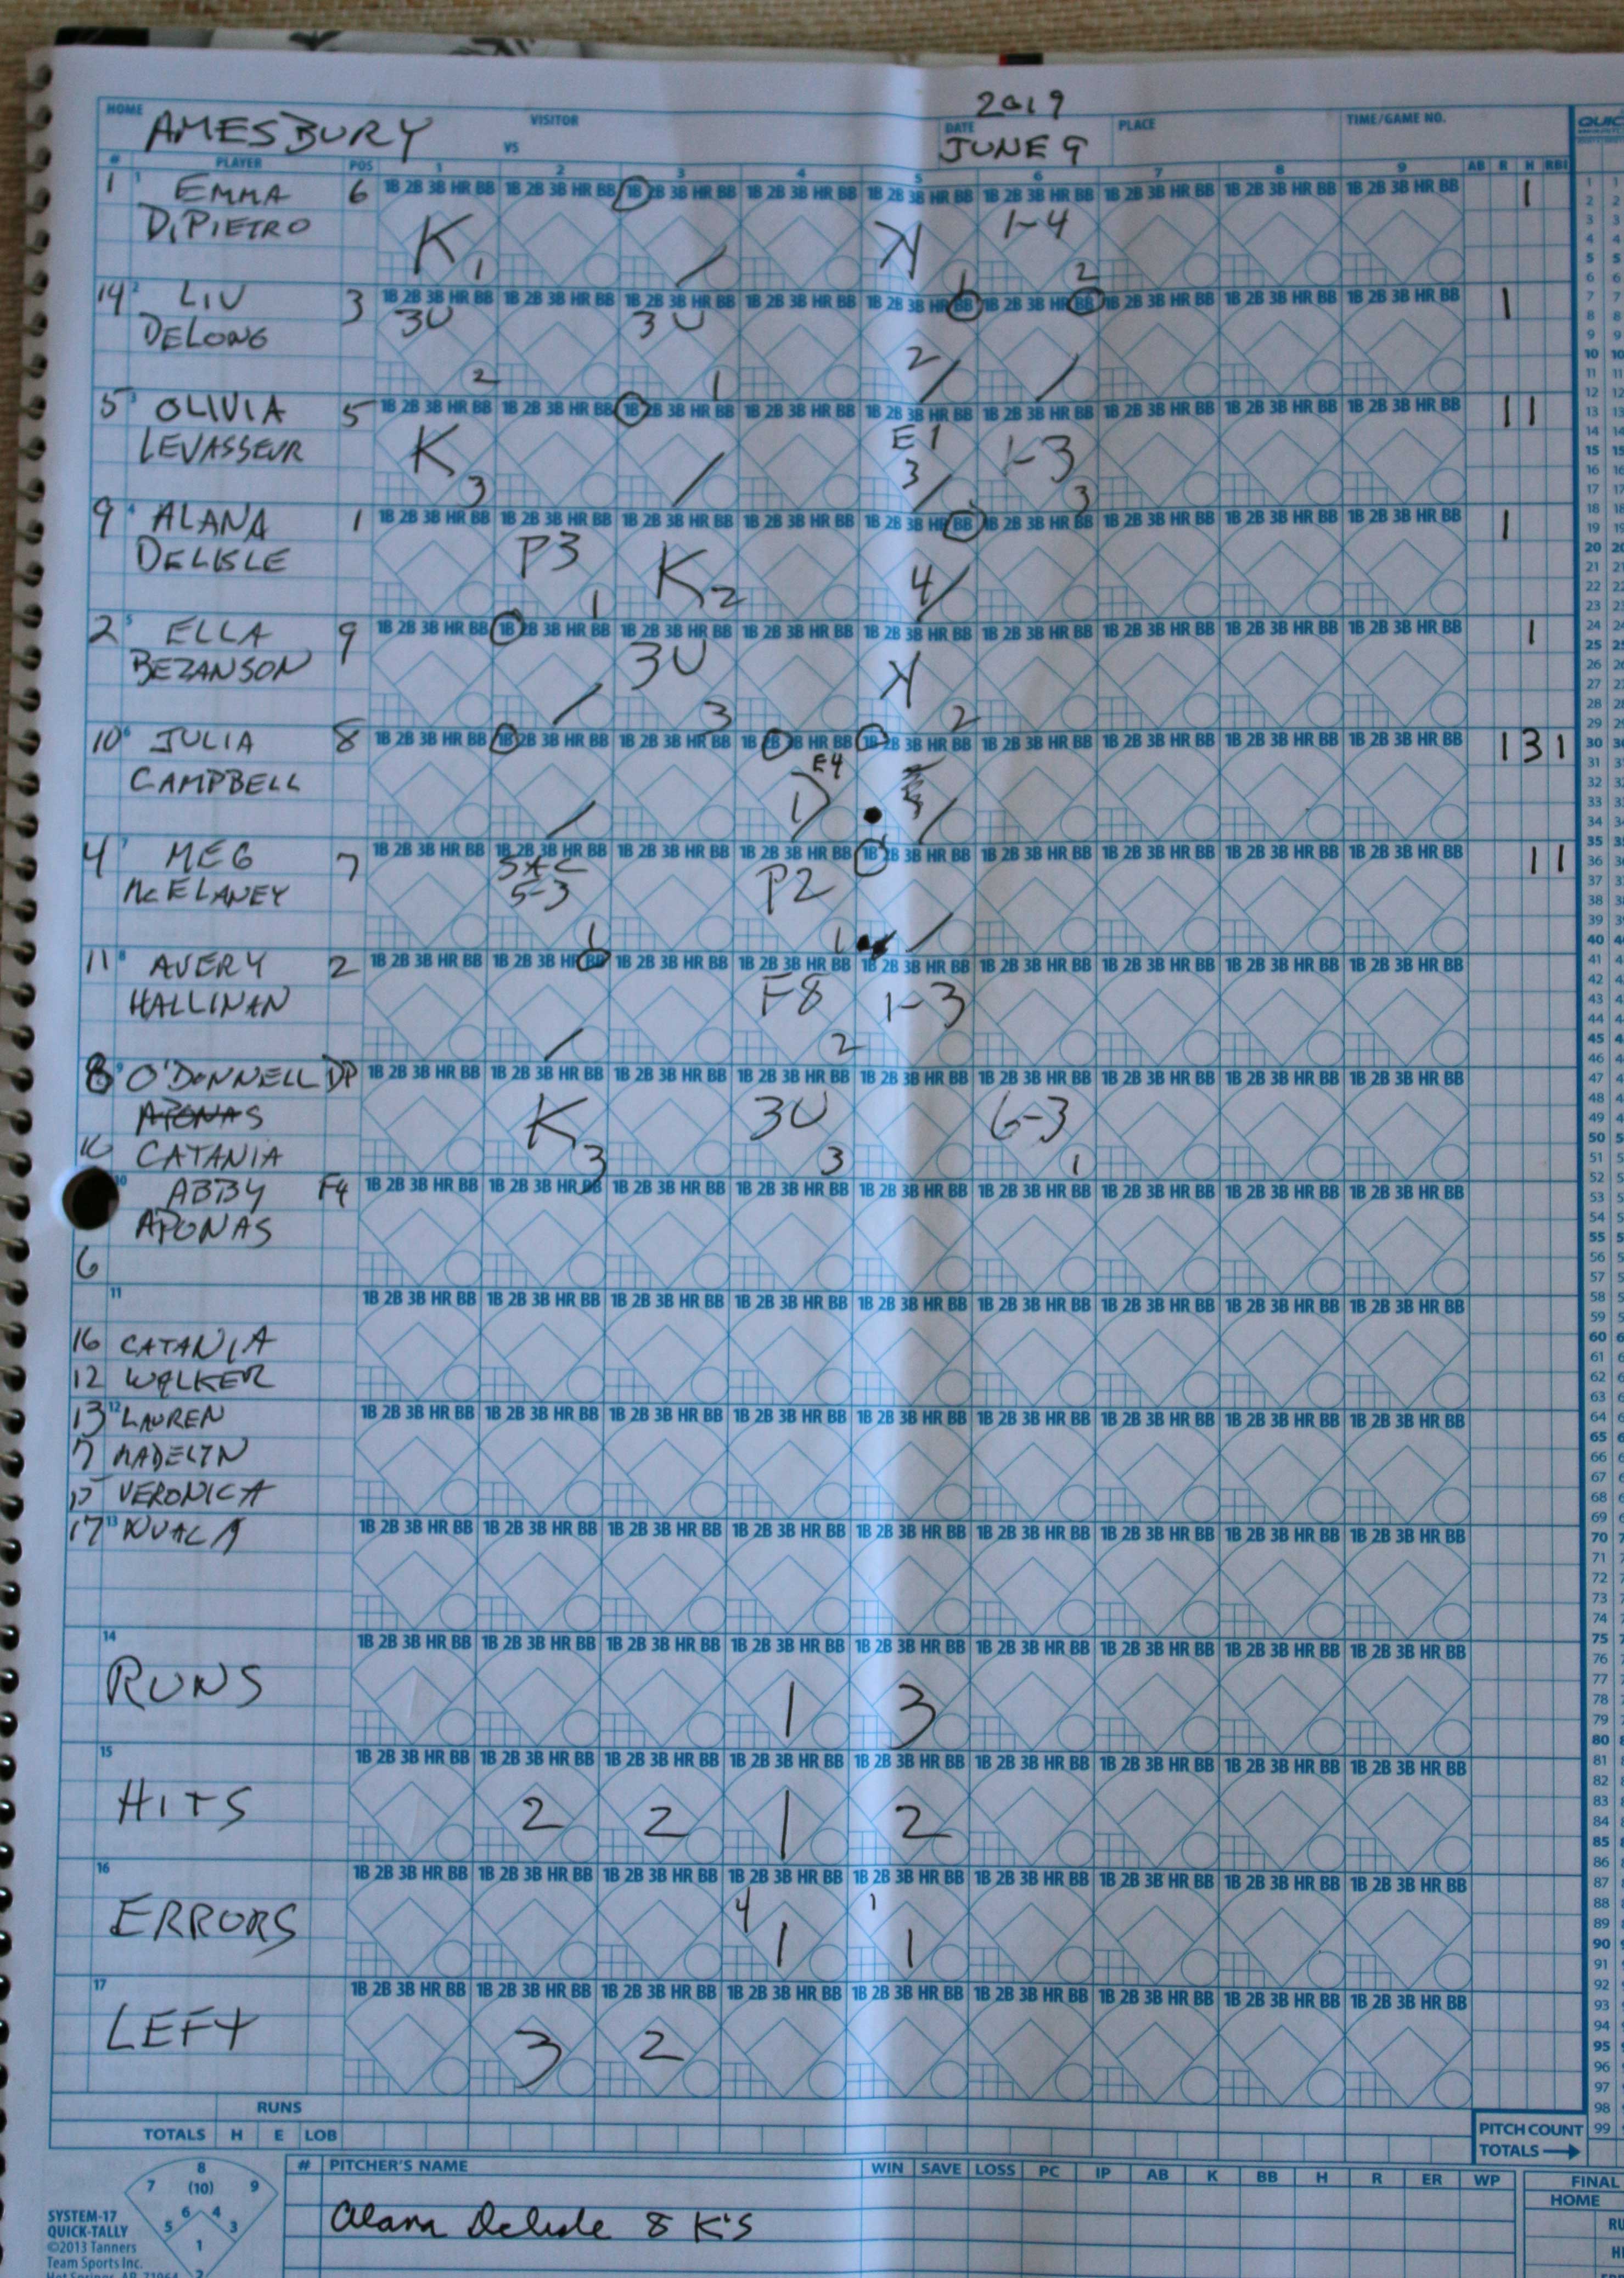 2019
HOME AMESBURY VISITOR VS DATE JUNE 9 PLACE TIME/GAME NO.
# PLAYER POS 1 2 3 4 5 6 7 8 9 AB R H RBI
1 EMMA DIPIETRO 6 K 1 K 1 1-4 2 1
14 LIV DELONG 3 3U 2 3U 1 2 1
5 OLIVIA LEVASSEUR 5 K 3 E1 3 1-3 3 1 1
9 ALANA DELISLE 1 P3 1 K 2 4 1
2 ELLA BEZANSON 9 3U 3 K 2 1
10 JULIA CAMPBELL 8 E4 1 1 3 1
4 MEG McELANEY 7 SAC 5-3 1 P2 1 1 1
11 AVERY HALLINAN 2 F8 2 1-3
8 O'DONNELL DP K 3 3U 3 6-3 1
APONAS
16 CATANIA
ABBY F4
APONAS
6
11
16 CATANIA
12 WALKER
13 LAUREN
7 MADELYN
15 VERONICA
17 NUALA
14
RUNS 1 3
15
HITS 2 2 1 2
16
ERRORS 4 1 1 1
17
LEFT 3 2
RUNS
TOTALS H E LOB
PITCH COUNT
TOTALS
# PITCHER'S NAME WIN SAVE LOSS PC IP AB K BB H R ER WP FINAL
HOME
Alana Delisle 8 K's
8
7 (10) 9
6 4
5 3
1
2
SYSTEM-17
QUICK-TALLY
©2013 Tanners
Team Sports Inc.